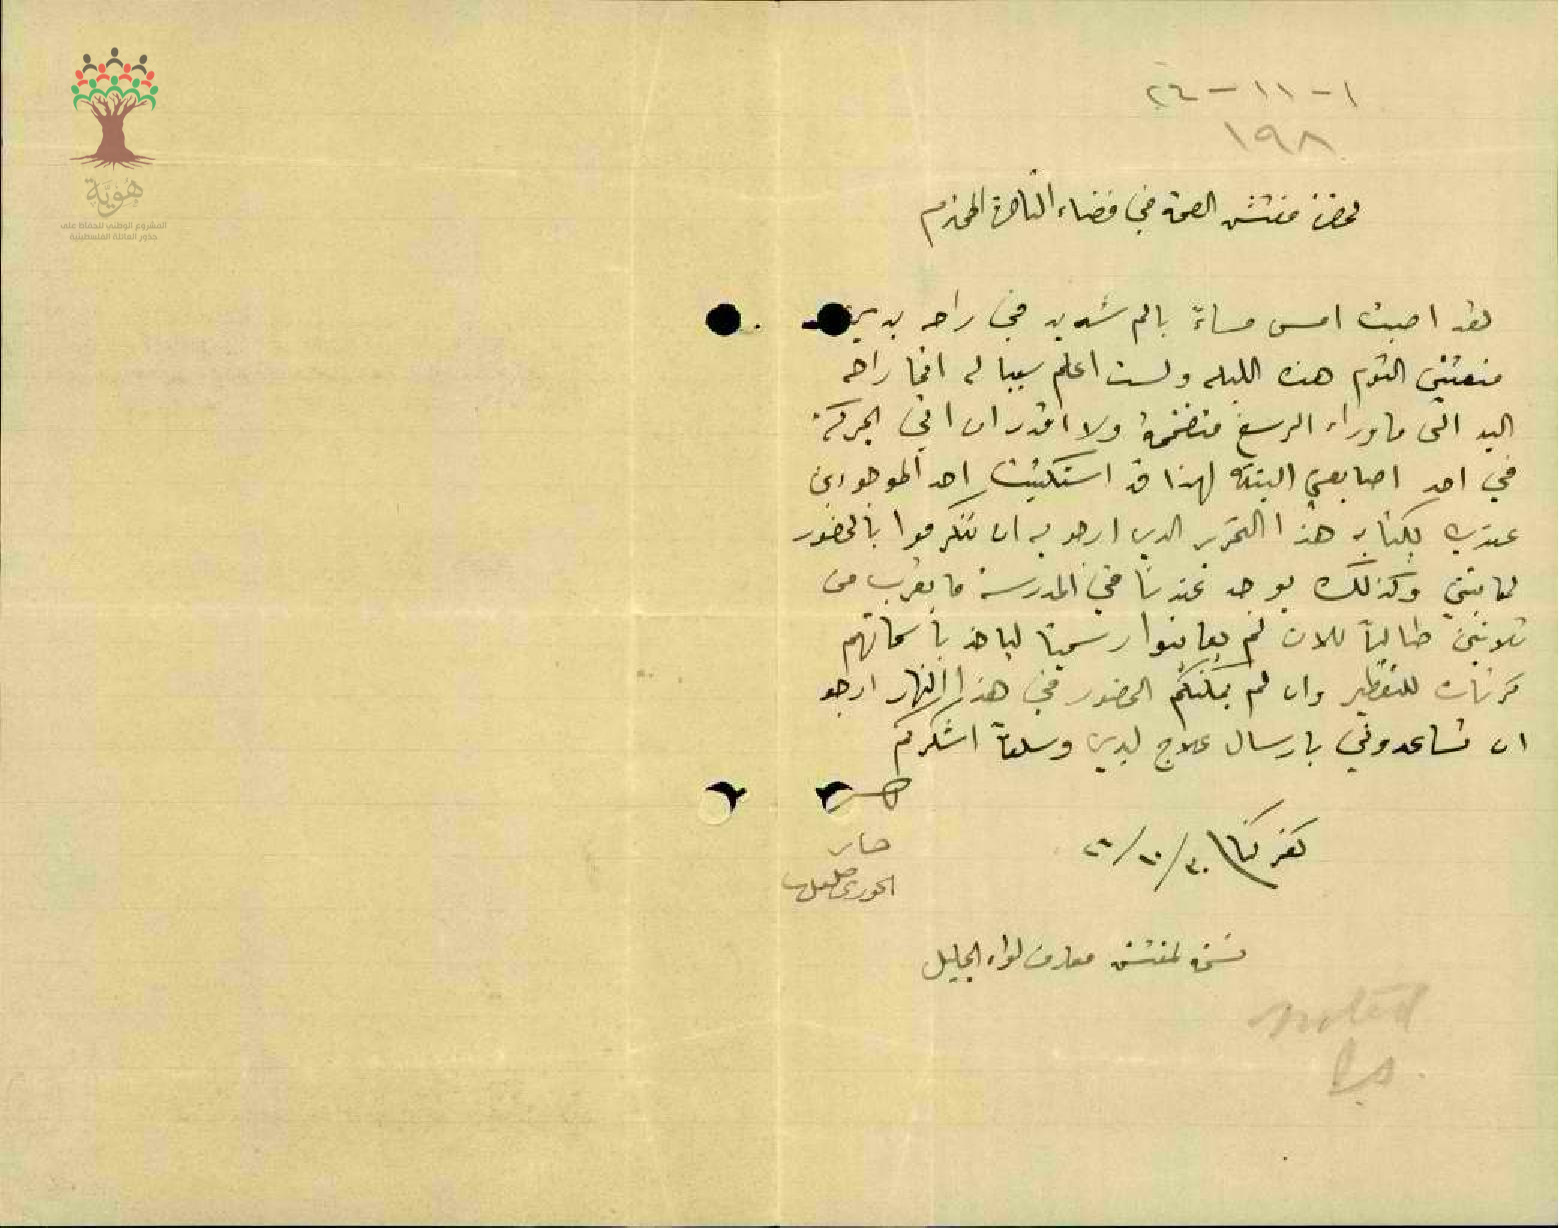 ١-١١-٢٤
١٩٨
هُوِيَّة
المشروع الوطني للحفاظ على
جذور العائلة الفلسطينية
لحضرة مفتش الصحة في قضاء الناصرة المحترم
لقد اصبت امس مساءً بالم شديد في راحه يدي
منعتني النوم هذه الليله ولست اعلم سببا له انما راحه
اليد الى ما وراء الرسغ متضخمة ولا اقدر ان اتي بحركة
في احد اصابعي البتة لهذا قد استكتبت احد الموجودين
عندي بكتابه هذا التحرير الذي ارجو به ان تتكرموا بالحضور
لمعاينتي وكذلك يوجد عندنا في المدرسة ما يقرب من
ثلاثين طالباً للان لم يعاينوا رسمياً لياخذ باسمائهم
للتقطير وان لم يمكنكم الحضور في هذا النهار ارجو
ان تساعدوني بارسال علاج ليدي وسلفاً اشكركم
كفركنا ٣٠/١٠/
الخوري
نسخة لمفتش معارف لواء الجليل
noted